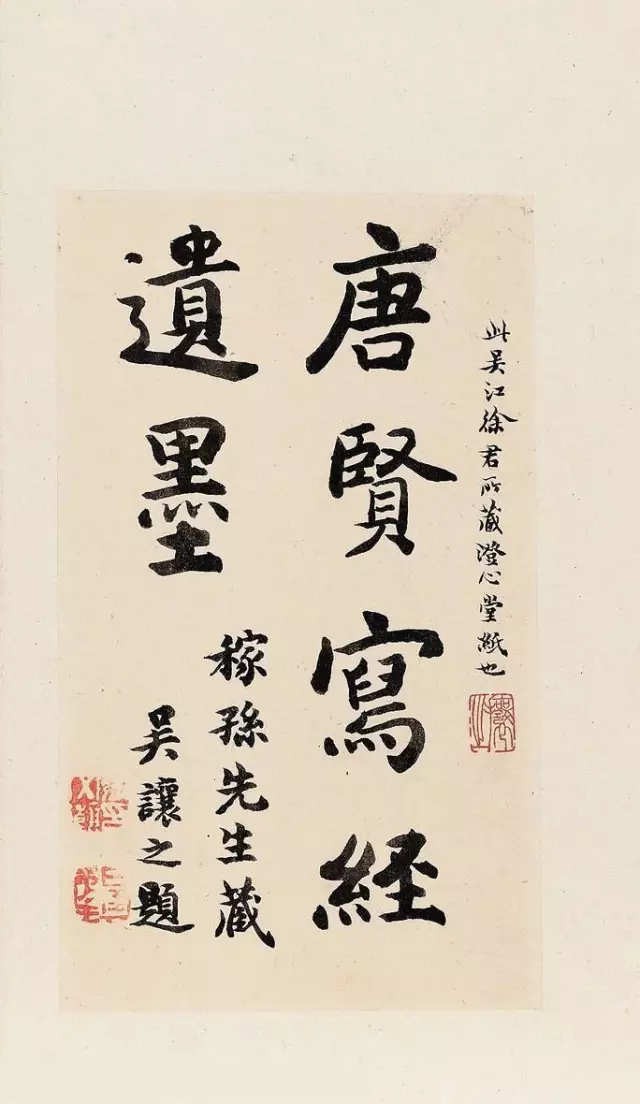 此吳江徐君所藏澄心堂紙也
唐賢寫経
遺墨
稼孫先生藏
吳讓之題